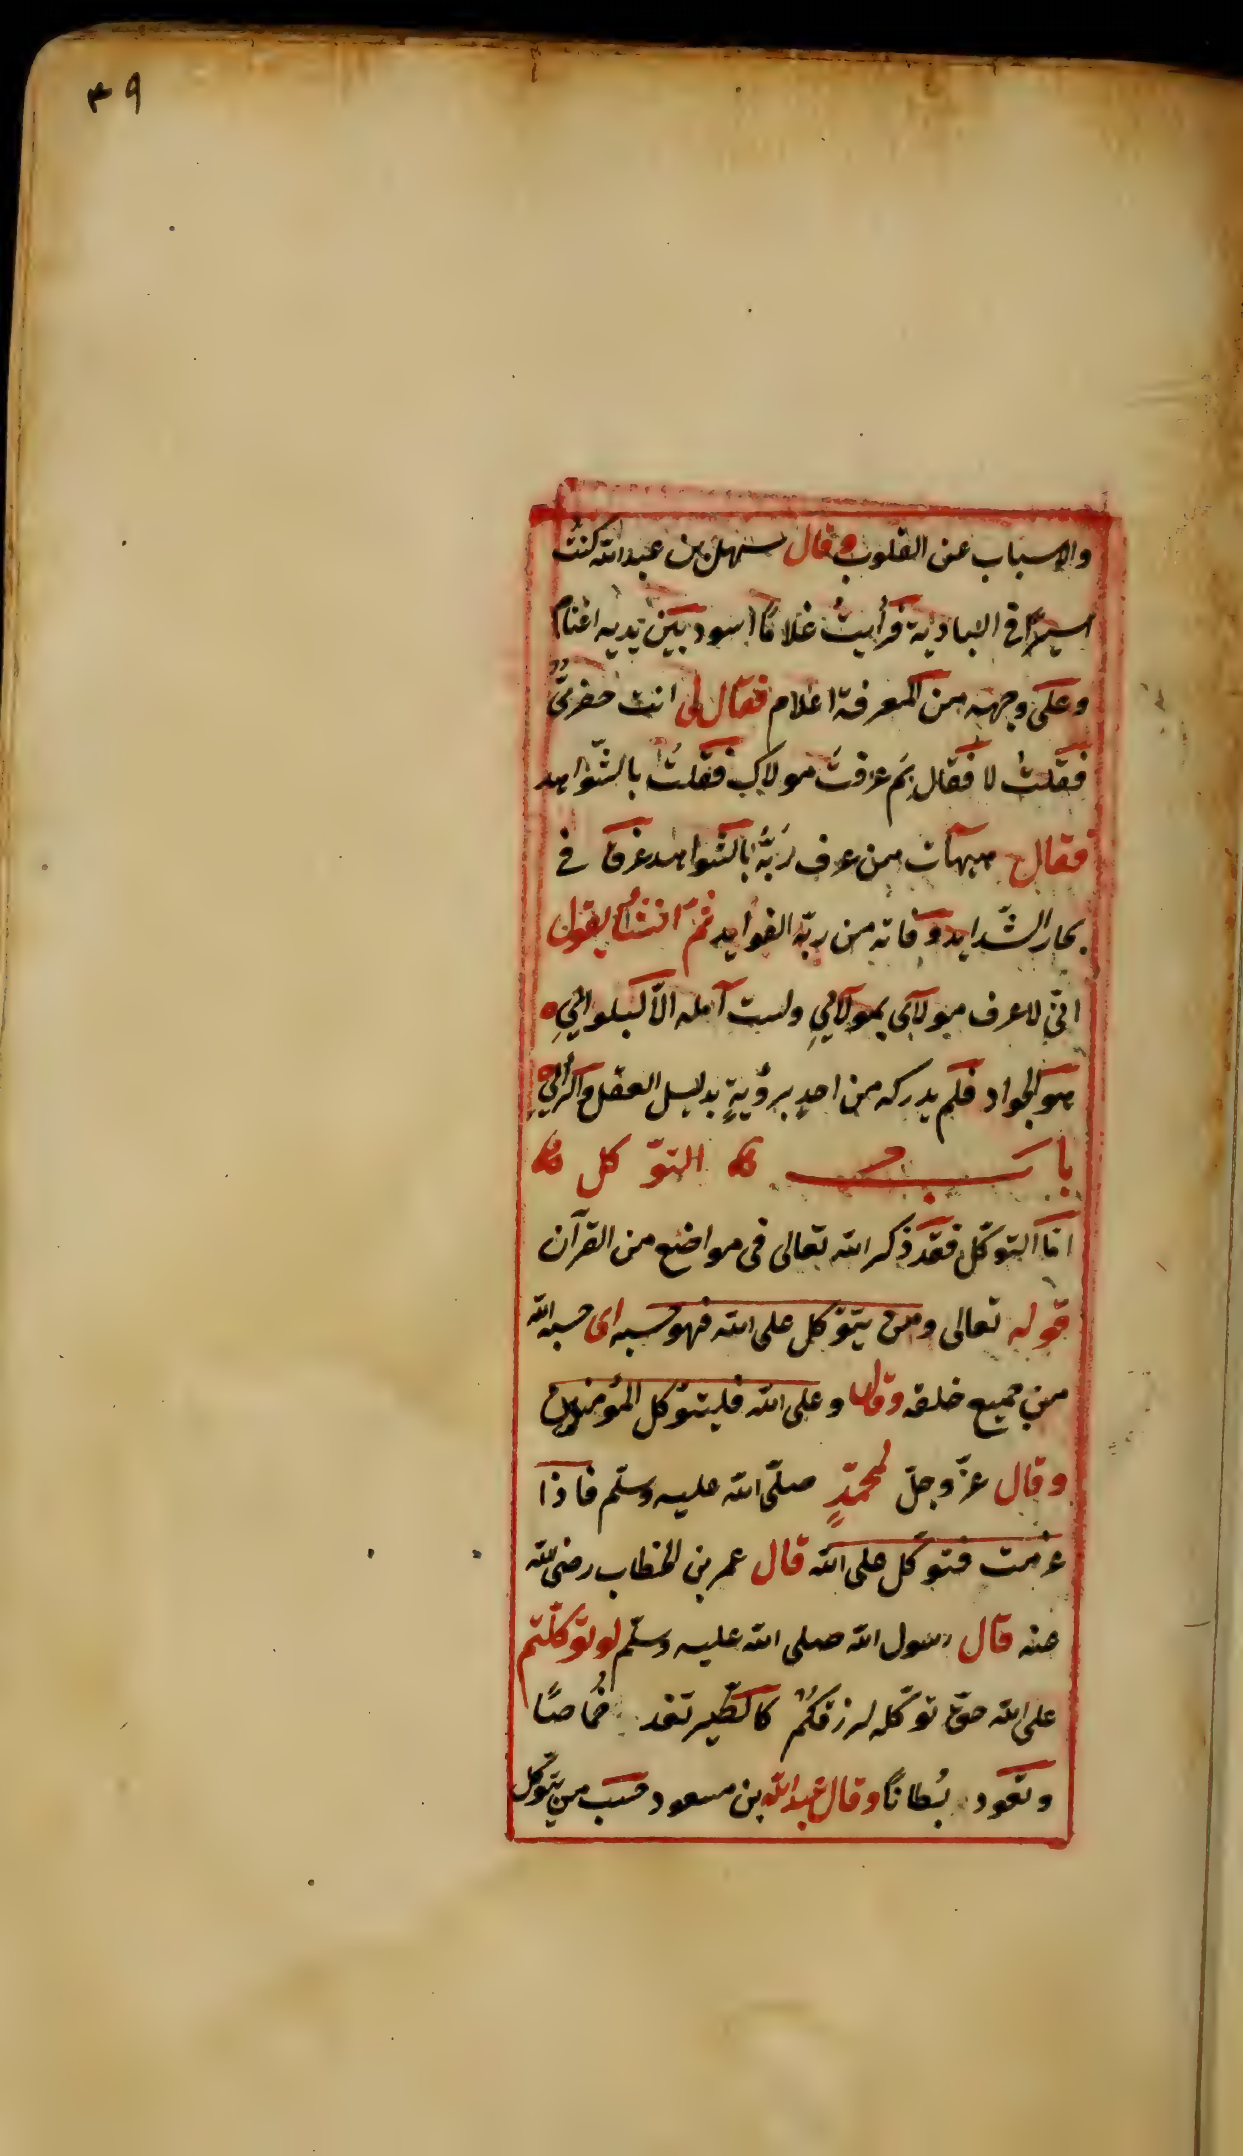 ٣٩
والاسباب عن القلوب وقال سهل بن عبدالله كنت
اسيرًا فى البادية فرأيتُ غلامًا اسود بين يديه اغنام
وعلى وجهه من المعرفة اعلام فقال لى انت حضرىٌّ
فقلتُ لا فقال بِمَ عرفتَ مولاك فقلتُ بالشّواهد
فقال هيهآت من عرف رَبَّهُ بالشواهد غرق فى
بحار الشّدايد وفاته من ربّه الفوايد ثمّ انشأ يقول
انّى لاعرف مولآى بمولآئى ولست آمله الّا لبلوائى
هو الجواد فلم يدركه من احدٍ برؤيةٍ بدليل العقل والرائى
باب التوّكل
امّا التوكّل فقد ذكر الله تعالى فى مواضع من القرآن
قوله تعالى ومن يتوّكل على الله فهو حسبه اى حسبه الله
من جميع خلقه وقال وعلى الله فليتوّكل المؤمنون
وقال عزّ وجلّ لمحمّدٍ صلّى الله عليه وسلّم فاذا
عزمت فتوكّل على الله قال عمر بن الخطاب رضى الله
عنه قال رسول الله صلى الله عليه وسلّم لو توكّلتم
على الله حقّ توكّله لرزقكُم كالطّير تغد خُماصًا
وتعود بُطانًا وقال عبدالله بن مسعود حَسب من يتوّكل